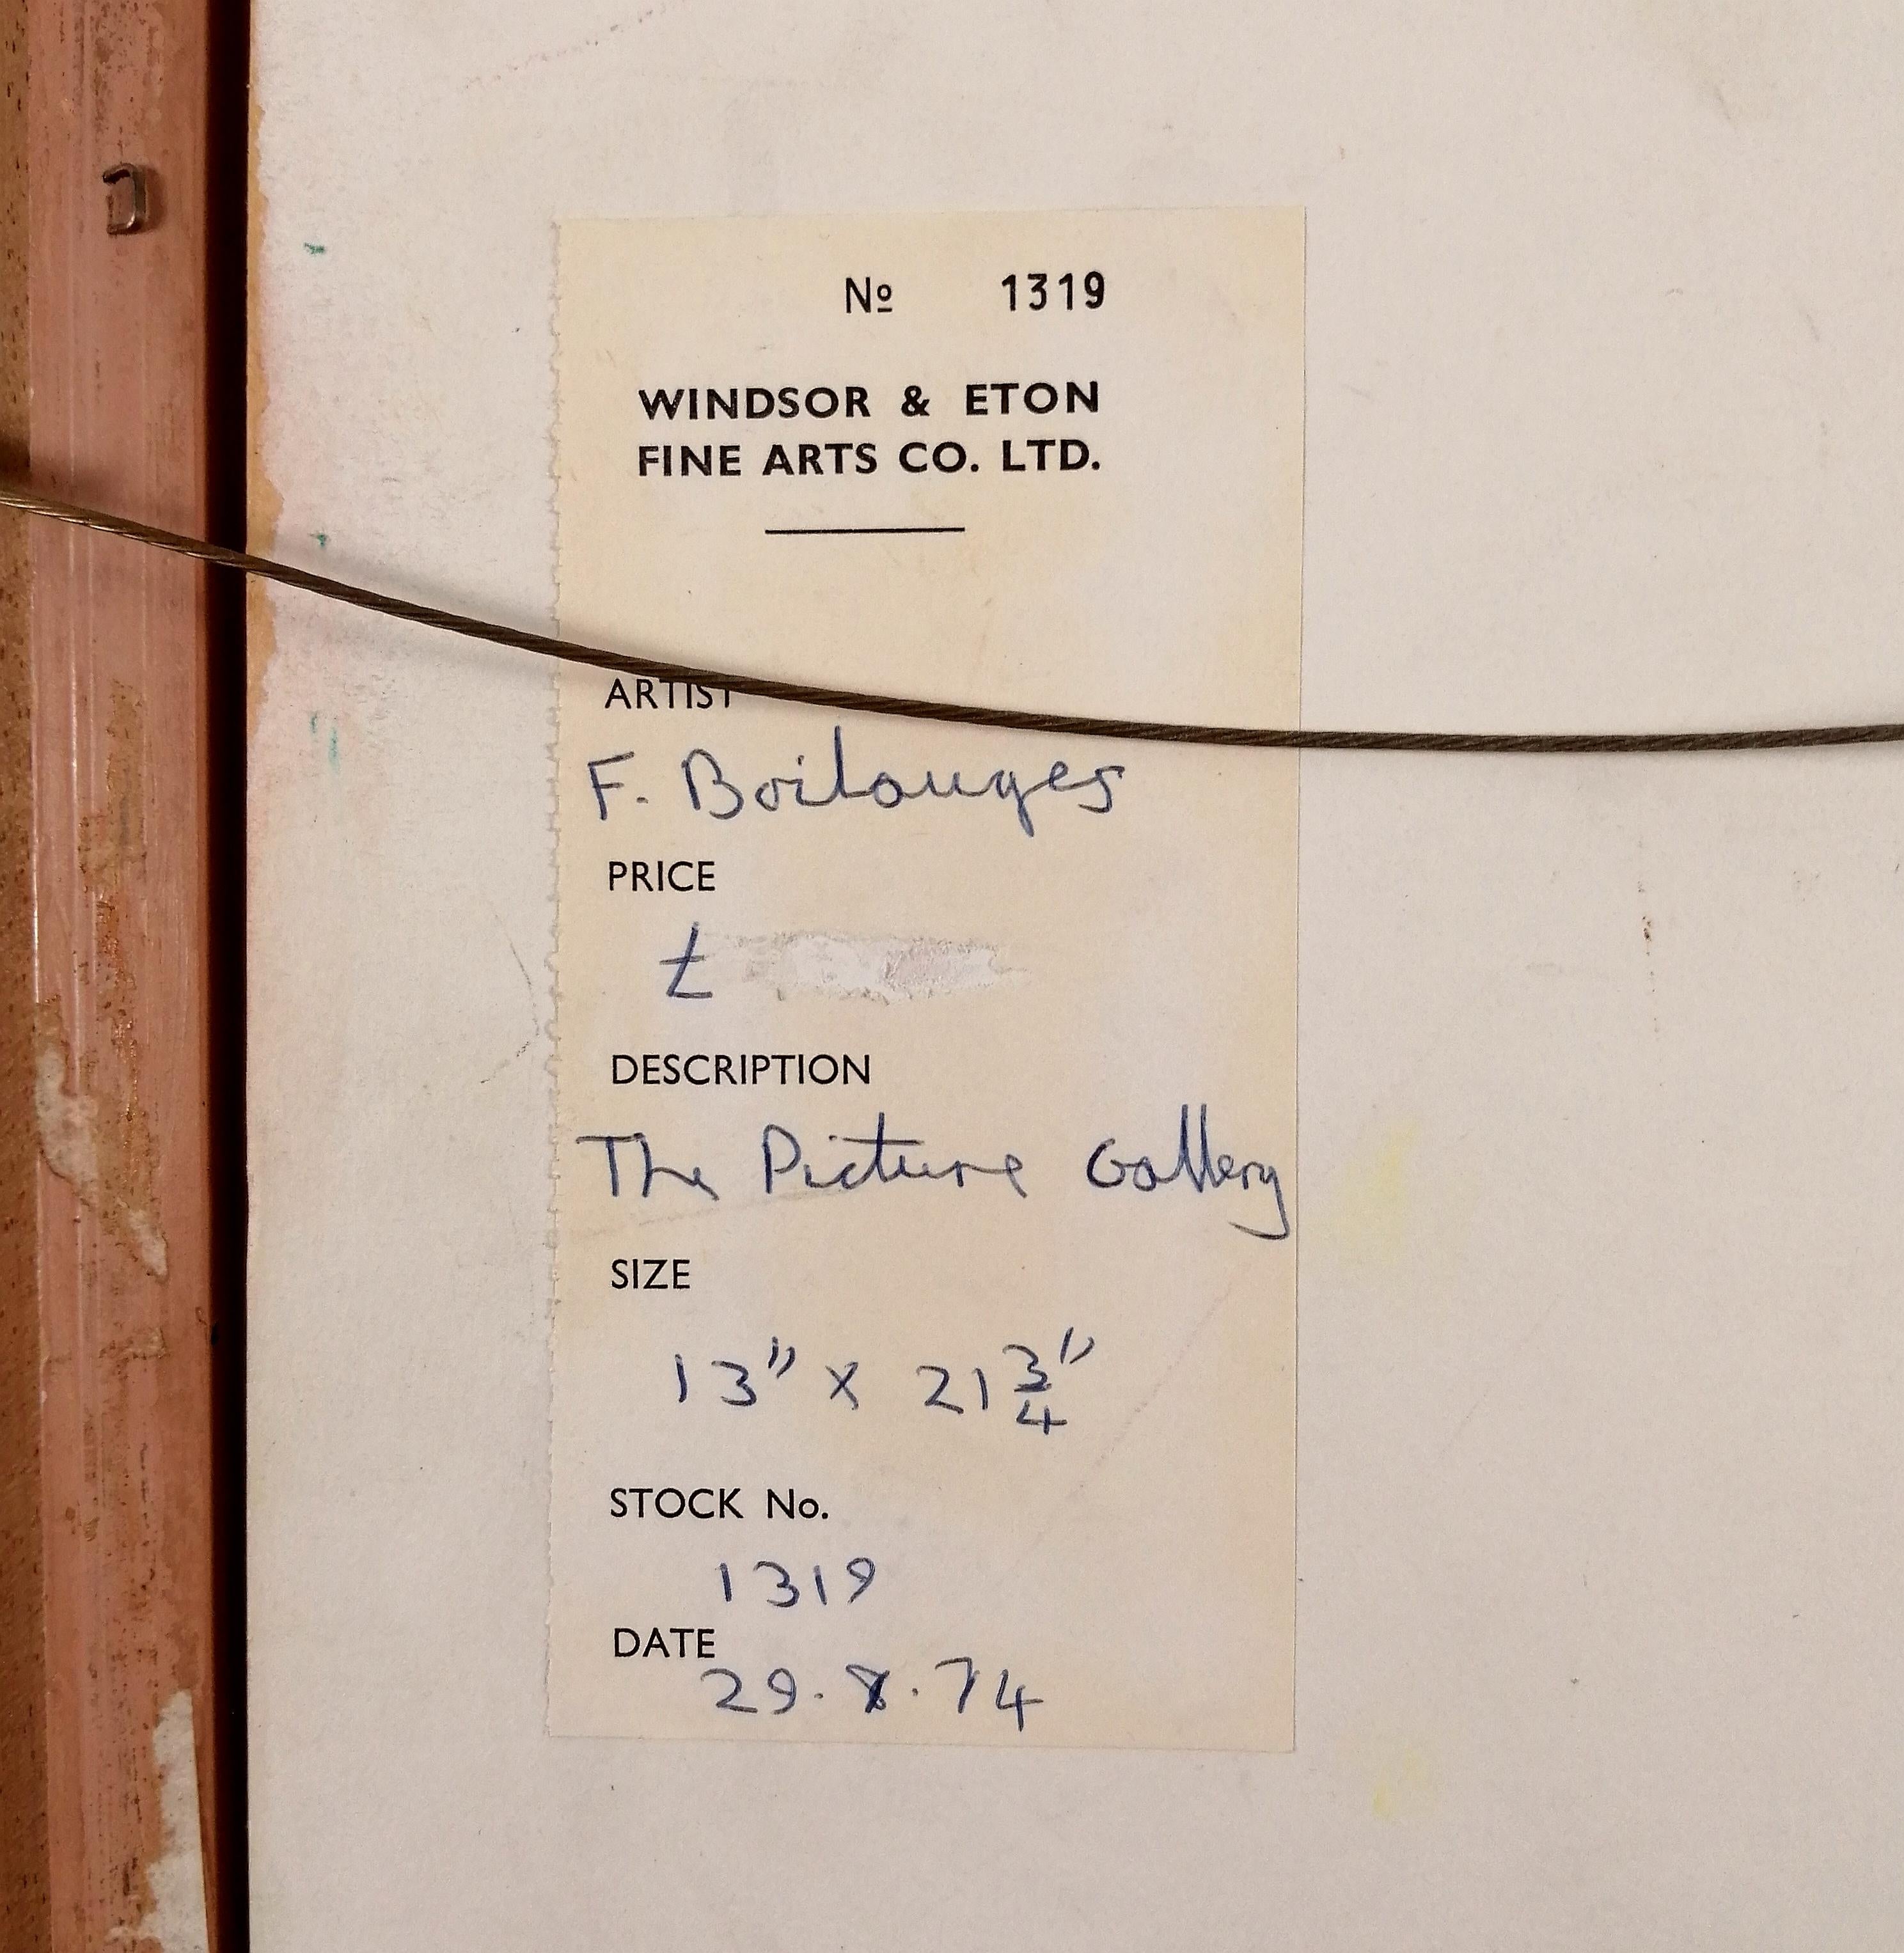 Nº 1319
WINDSOR & ETON
FINE ARTS CO. LTD.
ARTIST
F. Boilauges
PRICE
£
DESCRIPTION
The Picture Gallery
SIZE
13" x 21 3/4"
STOCK No.
1319
DATE
29.8.74